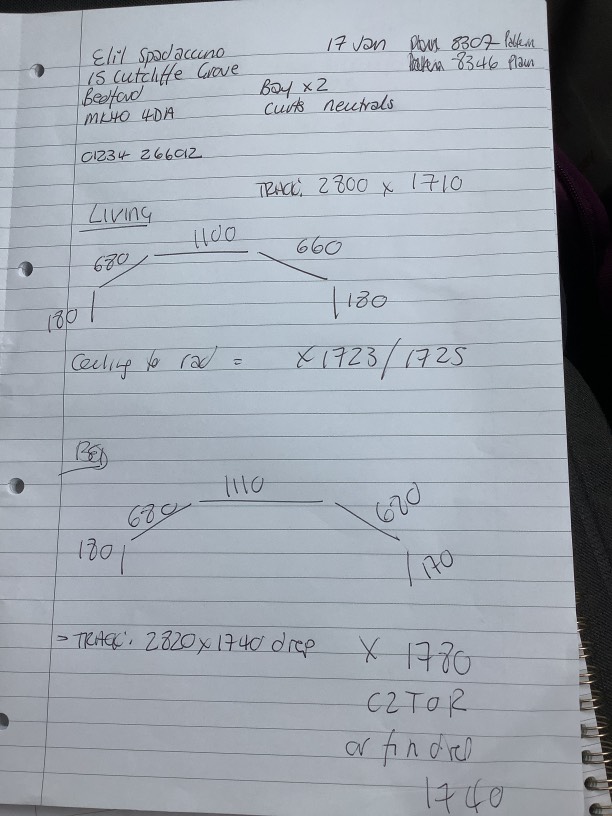 Elil Spadaccino 17 Jan Plain 8307 Pattern
15 Cutcliffe Grove Pattern 8346 Plain
Bedford Bay x 2
MK40 4DA Curts neutrals
01234 266012
TRACK: 2800 x 1710
Living
1100
680 660
180 180
Ceiling to rad = x 1723/1725
BED
1110
680 680
180 170
> TRACK: 2820 x 1740 drop x 1780
C2TOR
or fin drop
1740